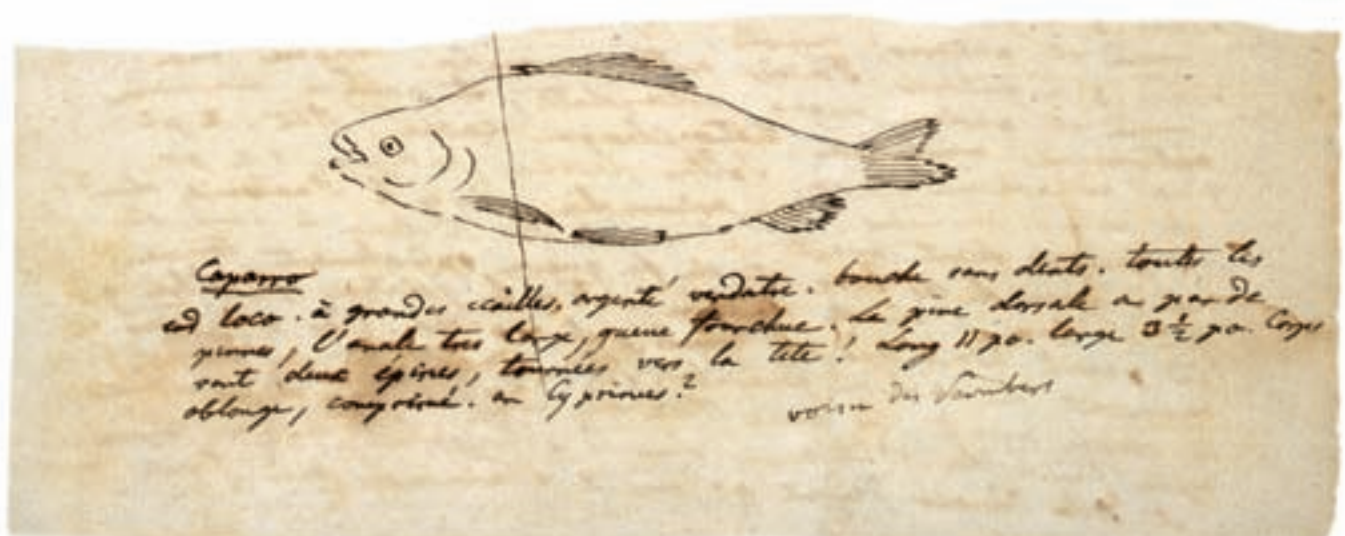 Caparro
ad loco. à grandes écailles, argenté verdatre. bouche sans dents. toutes les
pinnes, l'anale tres large, queue fourchue. La pine dorsale a par de
vant deux épines, tournées vers la tete! Long 11 po. large 3 ½ po. Corps
oblonge, comprimé. an Cyprinus?
voisin des